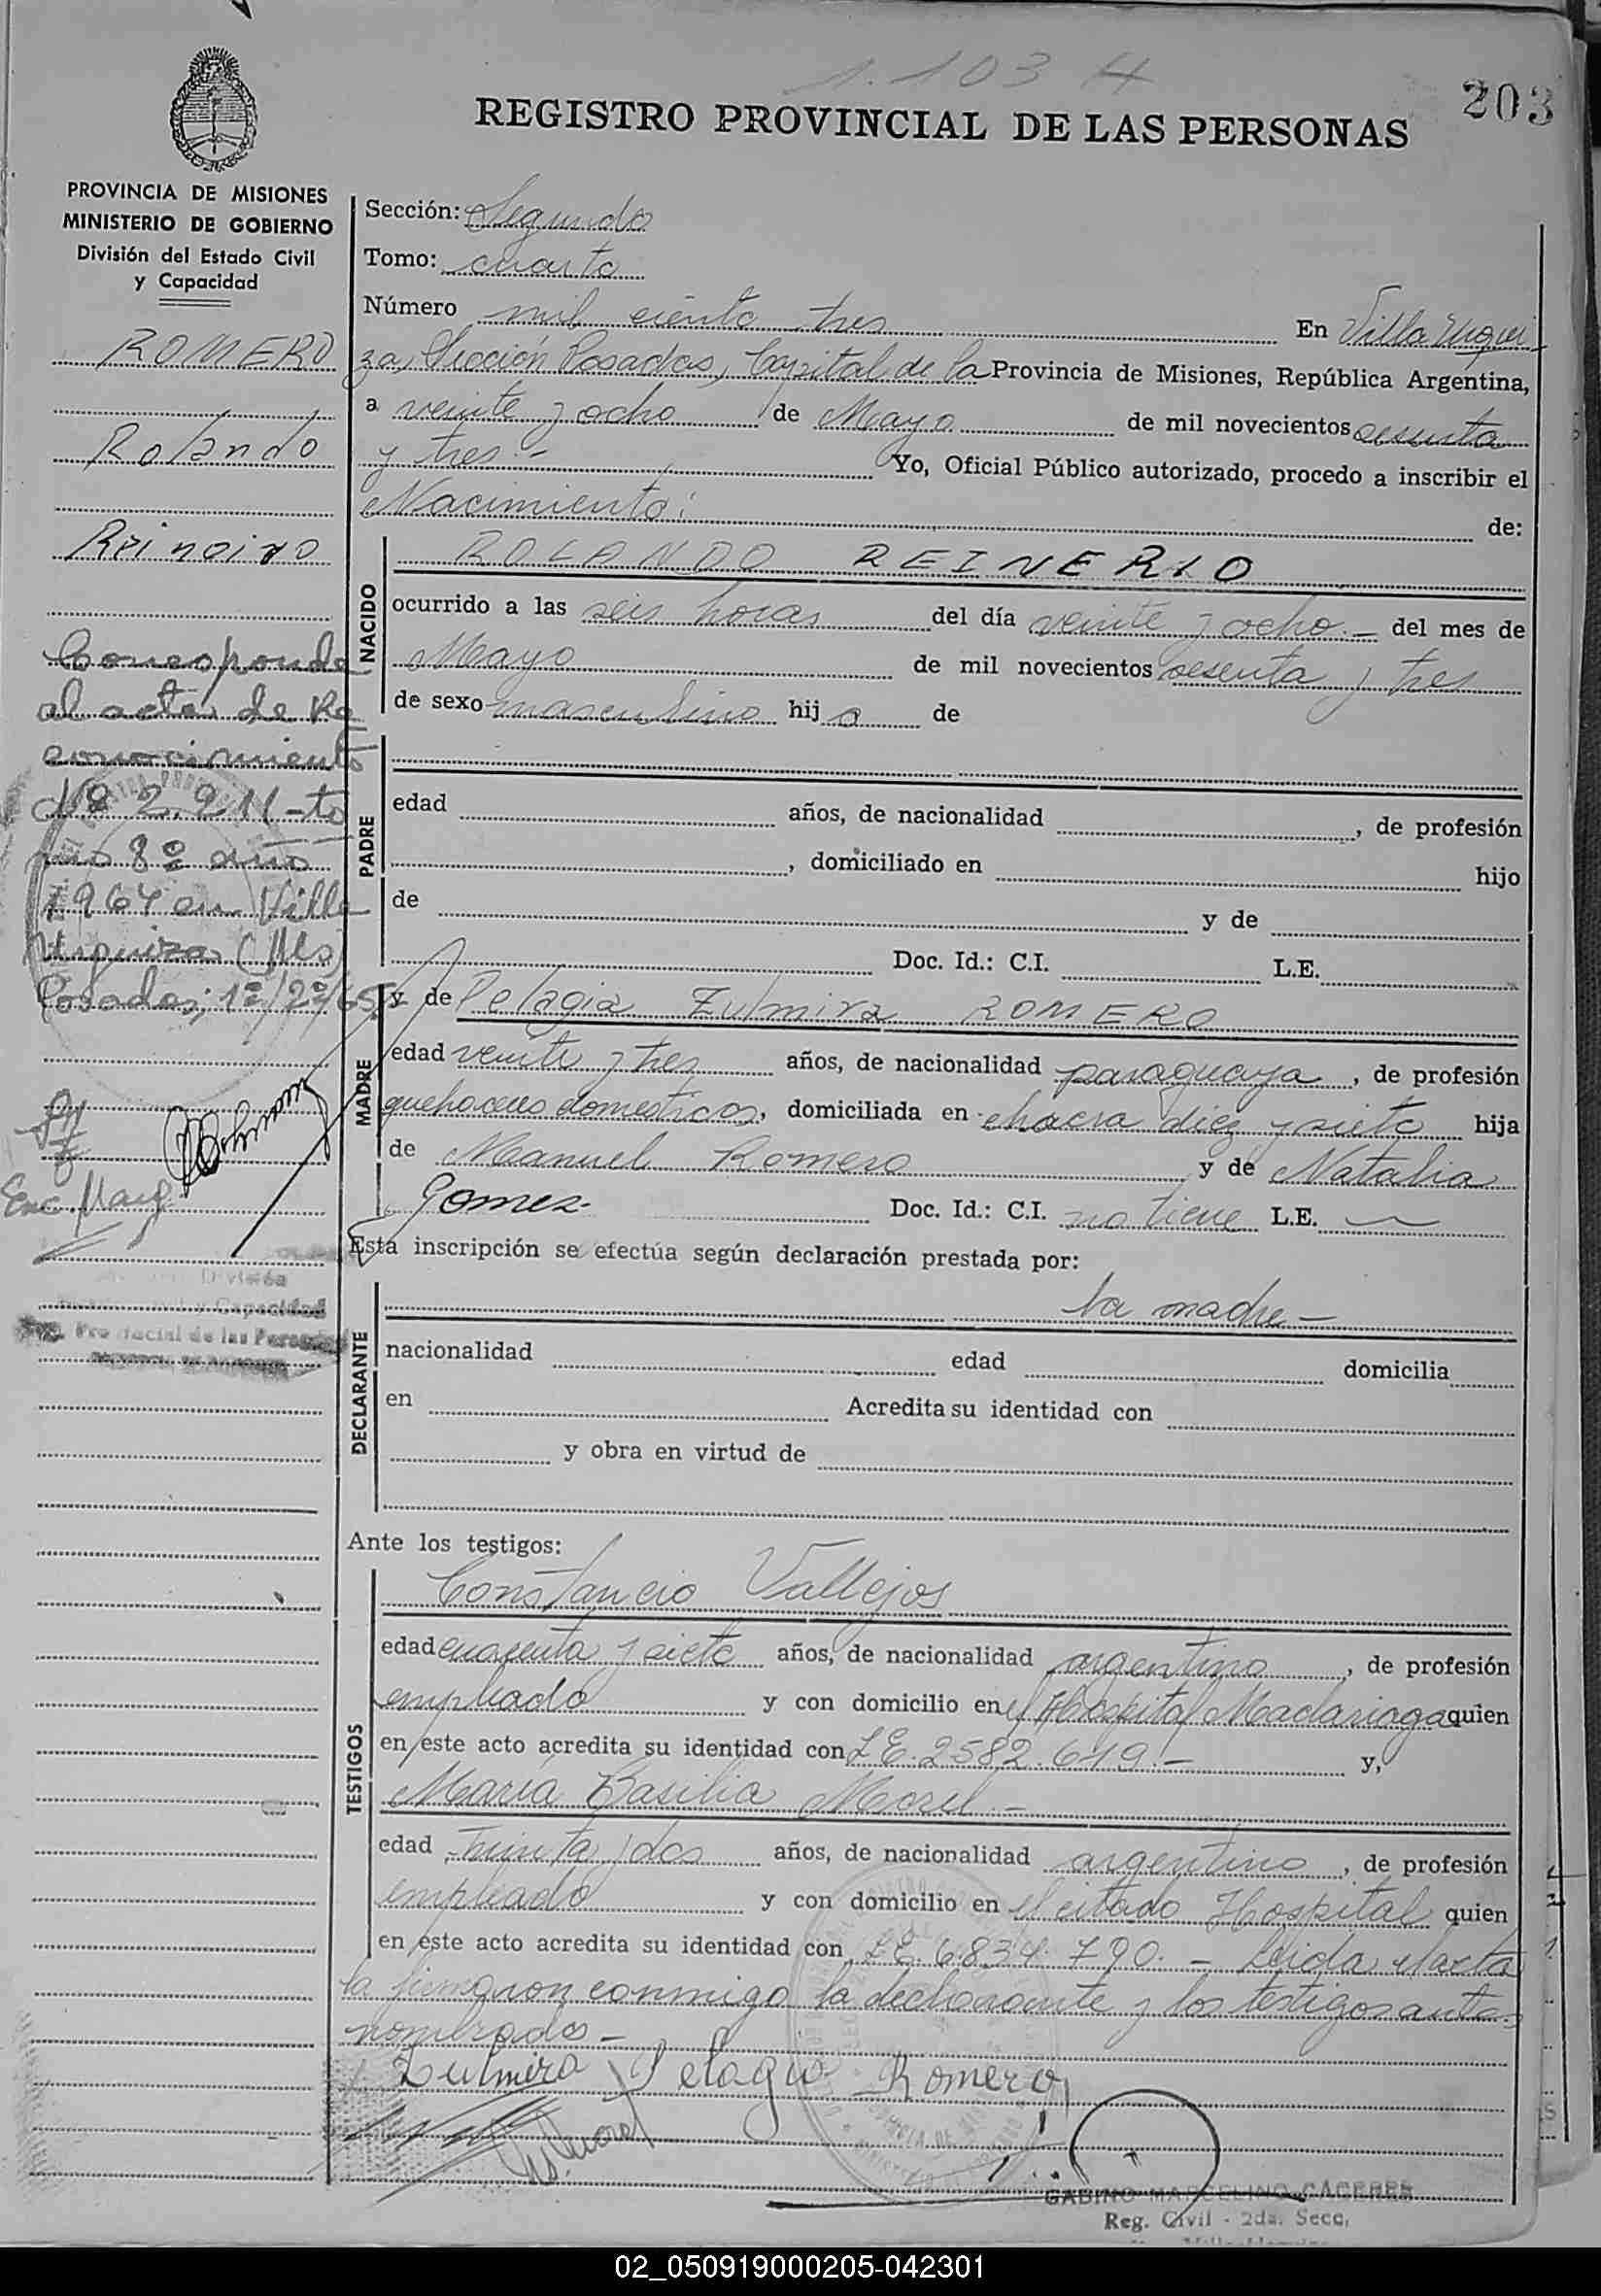 1.103 H
203
REGISTRO PROVINCIAL DE LAS PERSONAS
PROVINCIA DE MISIONES
MINISTERIO DE GOBIERNO
División del Estado Civil
y Capacidad
ROMERO
Rolando
Reineiro
Corresponde
al acta de Re
conocimiento
Nº 2.211-to
mo 8º año
1964 en Villa
Urquiza (Ms)
Posadas, 1º/2º/65
Enc. Marg.
División
y Capacidad
Provincial de las Personas
Sección: Segunda
Tomo: cuarto
Número mil ciento tres En Villa Urqui
za, Sección Posadas, Capital de la Provincia de Misiones, República Argentina,
a veinte y ocho de Mayo de mil novecientos sesenta
y tres.- Yo, Oficial Público autorizado, procedo a inscribir el
Nacimiento: de:
NACIDO
ROLANDO REINERIO
ocurrido a las seis horas del día veinte y ocho.- del mes de
Mayo de mil novecientos sesenta y tres
de sexo masculino hijo de
PADRE
edad años, de nacionalidad , de profesión
, domiciliado en hijo
de y de
Doc. Id.: C.I. L.E.
MADRE
y de Pelagia Zulmira ROMERO
edad veinte y tres años, de nacionalidad paraguaya, de profesión
quehaceres domesticos, domiciliada en chacra diez y siete hija
de Manuel Romero y de Natalia
Gomez.- Doc. Id.: C.I. no tiene L.E.
Esta inscripción se efectúa según declaración prestada por:
DECLARANTE
la madre -
nacionalidad edad domicilia
en Acredita su identidad con
y obra en virtud de
Ante los testigos:
TESTIGOS
Constancio Vallejos
edad cuarenta y siete años, de nacionalidad argentino, de profesión
empleado y con domicilio en el Hospital Madariaga quien
en este acto acredita su identidad con L.E. 2582.619.- y,
María Basilia Morel.-
edad treinta y dos años, de nacionalidad argentino, de profesión
empleado y con domicilio en el citado Hospital quien
en este acto acredita su identidad con L.E. 6.834.790.- Leida el acta
la firmaron conmigo la declarante y los testigos antes
nombrados -
Zulmira Pelagia Romero
GABINO MARCELINO CACERES
Reg. Civil - 2da. Secc.
02_050919000205-042301